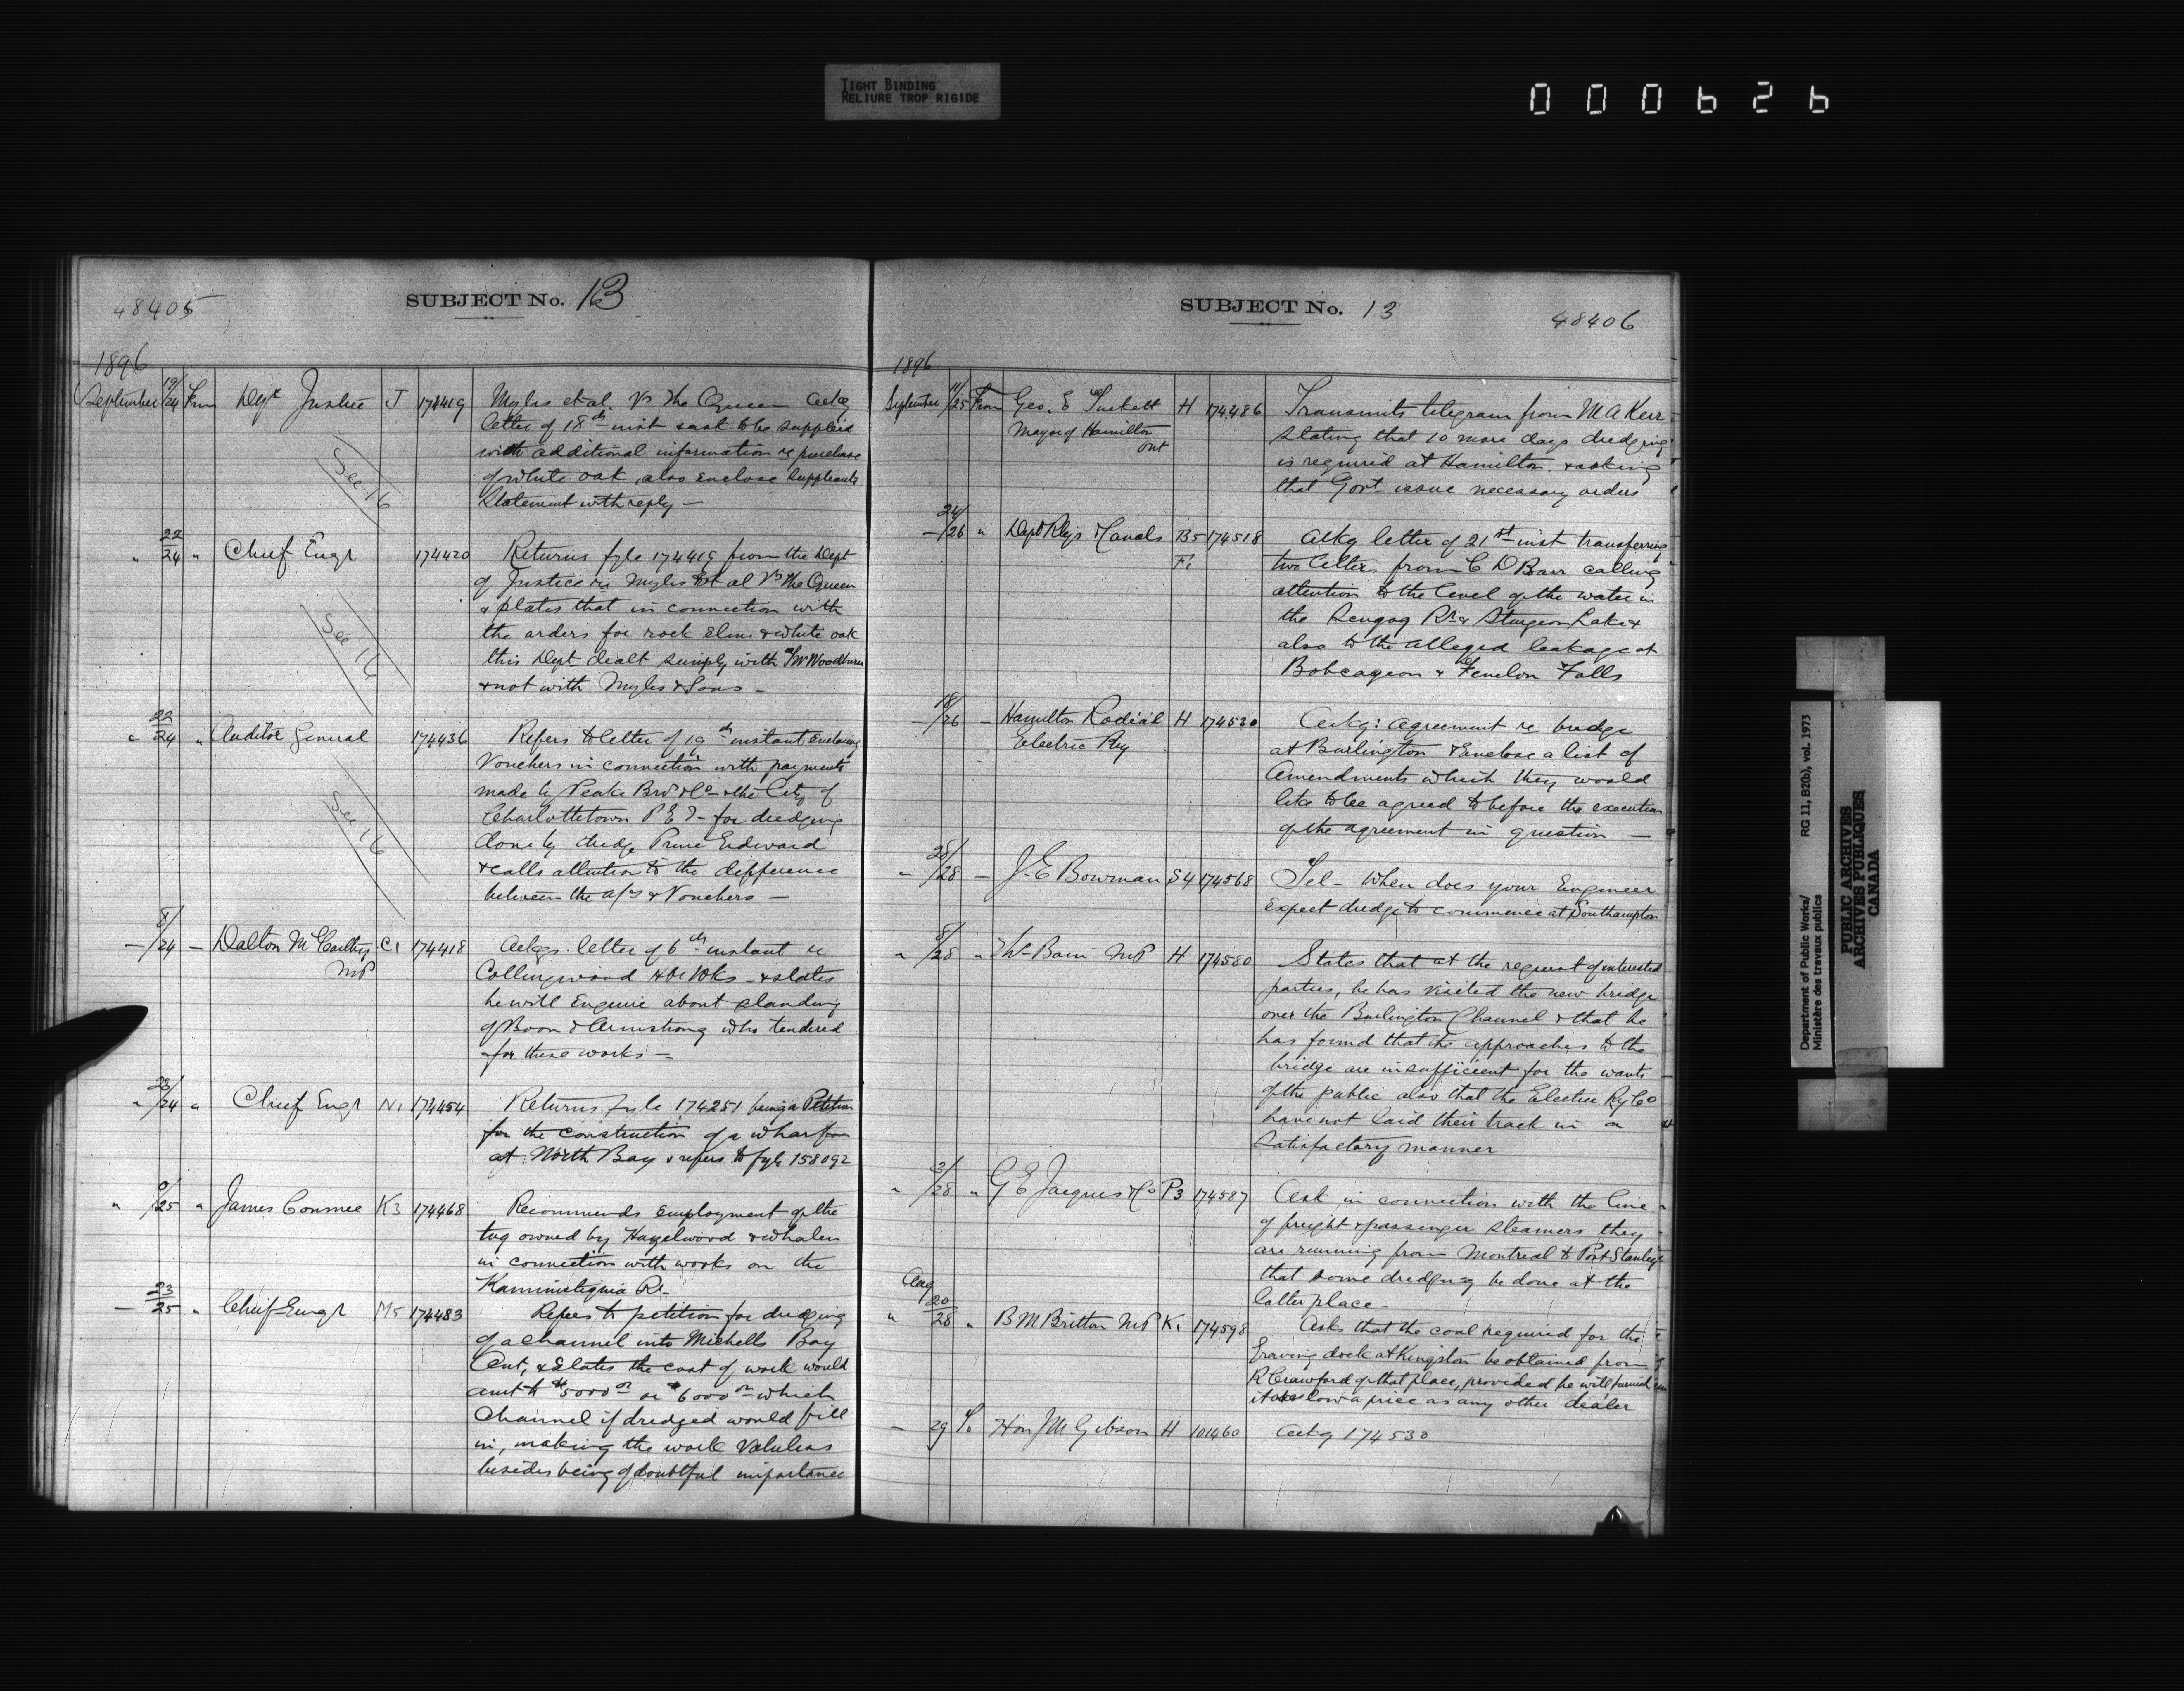 TIGHT BINDING
RELIURE TROP RIGIDE
000626
48405
SUBJECT No. 13
1896
September 19/24 From Dept Justice J 174419 Myles et al. Vs The Queen Ackg
letter of 18th inst & ask to be supplied
with additional information re purchase
of white oak, also enclose Suppliants
Statement with reply —
See 16
" 22/24 " Chief Engr 174420 Returns fyle 174419 from the Dept
of Justice re Myles Et al Vs the Queen
& states that in connection with
the orders for rock Elm & white oak
this Dept dealt simply with Mr Woodburn
& not with Myles & Sons —
See 16
" 22/24 " Auditor General 174436 Refers to letter of 19th instant Enclosing
Vouchers in connection with payments
made by Peake Bros & Co & the City of
Charlottetown P.E.I — for dredging
done by dredge Prince Edward
& calls attention to the difference
between the a/cs & Vouchers —
See 16
— 8/24 — Dalton McCarthy C1 174418 Ackgs letter of 6th instant re
MP
Collingwood Wks — & states
he will Enquire about standing
of Boon & Armstrong who tendered
for these works —
" 23/24 " Chief Engr N1 174454 Returns fyle 174251 being a Petition
for the construction of a wharf
at North Bay & refers to fyle 158092
" 9/25 " James Conmee K3 174468 Recommends Employment of the
tug owned by Hazelwood & Whalen
in connection with works on the
Kaministiquia Rr.
— 23/25 " Chief Engr M5 174483 Refers to petition for dredging
of a channel into Michells Bay
Ont, & States the cost of work would
amt to $5000 00 or $6000 00 which
Channel if dredged would fill
in, making the work Valueless
besides being of doubtful importance
SUBJECT No. 13
48406
1896
September 11/25 From Geo. E Tuckett H 174486 Transmits telegram from M A Kerr
Mayor of Hamilton
Ont
stating that 10 more days dredging
is required at Hamilton & asking
that Govt issue necessary orders
— 24/26 " Dept Rlys & Canals B5 174518 Ackg letter of 21st inst transferring
F1
two letters from C D Barr calling
attention to the level of the water in
the Scugog Rr & Sturgeon Lake &
also to the alleged leakage at
Bobcageon & Fenelon Falls
— 18/26 — Hamilton Radial H 174530 Ackg: agreement re bridge
Electric Ry
at Burlington & Enclose a list of
Amendments which they would
like to be agreed to before the execution
of the agreement in question —
" 28/28 — J. E Bowman S4 174568 Tel — When does your Engineer
Expect dredge to commence at Southampton
" 8/28 " Ths Bain MP H 174580 States that at the request of interested
parties, he has visited the new bridge
over the Burlington Channel & that he
has found that the approaches to the
bridge are insufficient for the wants
of the public also that the Electric Ry Co
have not laid their track in a
Satisfactory manner
" 3/28 " G E Jacques & Co P3 174587 Ask in connection with the line
of freight & passenger steamers they
are running from Montreal to Port Stanley
that some dredging be done at the
latter place —
Aug
" 20/28 " B M Britton MP K1 174598 Asks that the coal required for the
Graving dock at Kingston be obtained from
R Crawford of that place, provided he will furnish
it at as low a price as any other dealer
— 29 To Hon J M Gibson H 101460 Ackg 174530
Department of Public Works/
Ministère des travaux publics
RG 11, B2(b), vol. 1973
PUBLIC ARCHIVES
ARCHIVES PUBLIQUES
CANADA